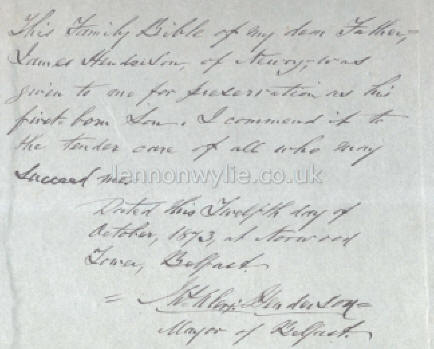 This Family Bible of my dear Father,
James Henderson, of Newry, was
given to me for preservation as his
first born Son. I commend it to
the tender care of all who may
succeed me.
lennonwylie.co.uk
Dated this Twelfth day of
October, 1873, at Norwood
Tower, Belfast.
= Henderson =
Mayor of Belfast.